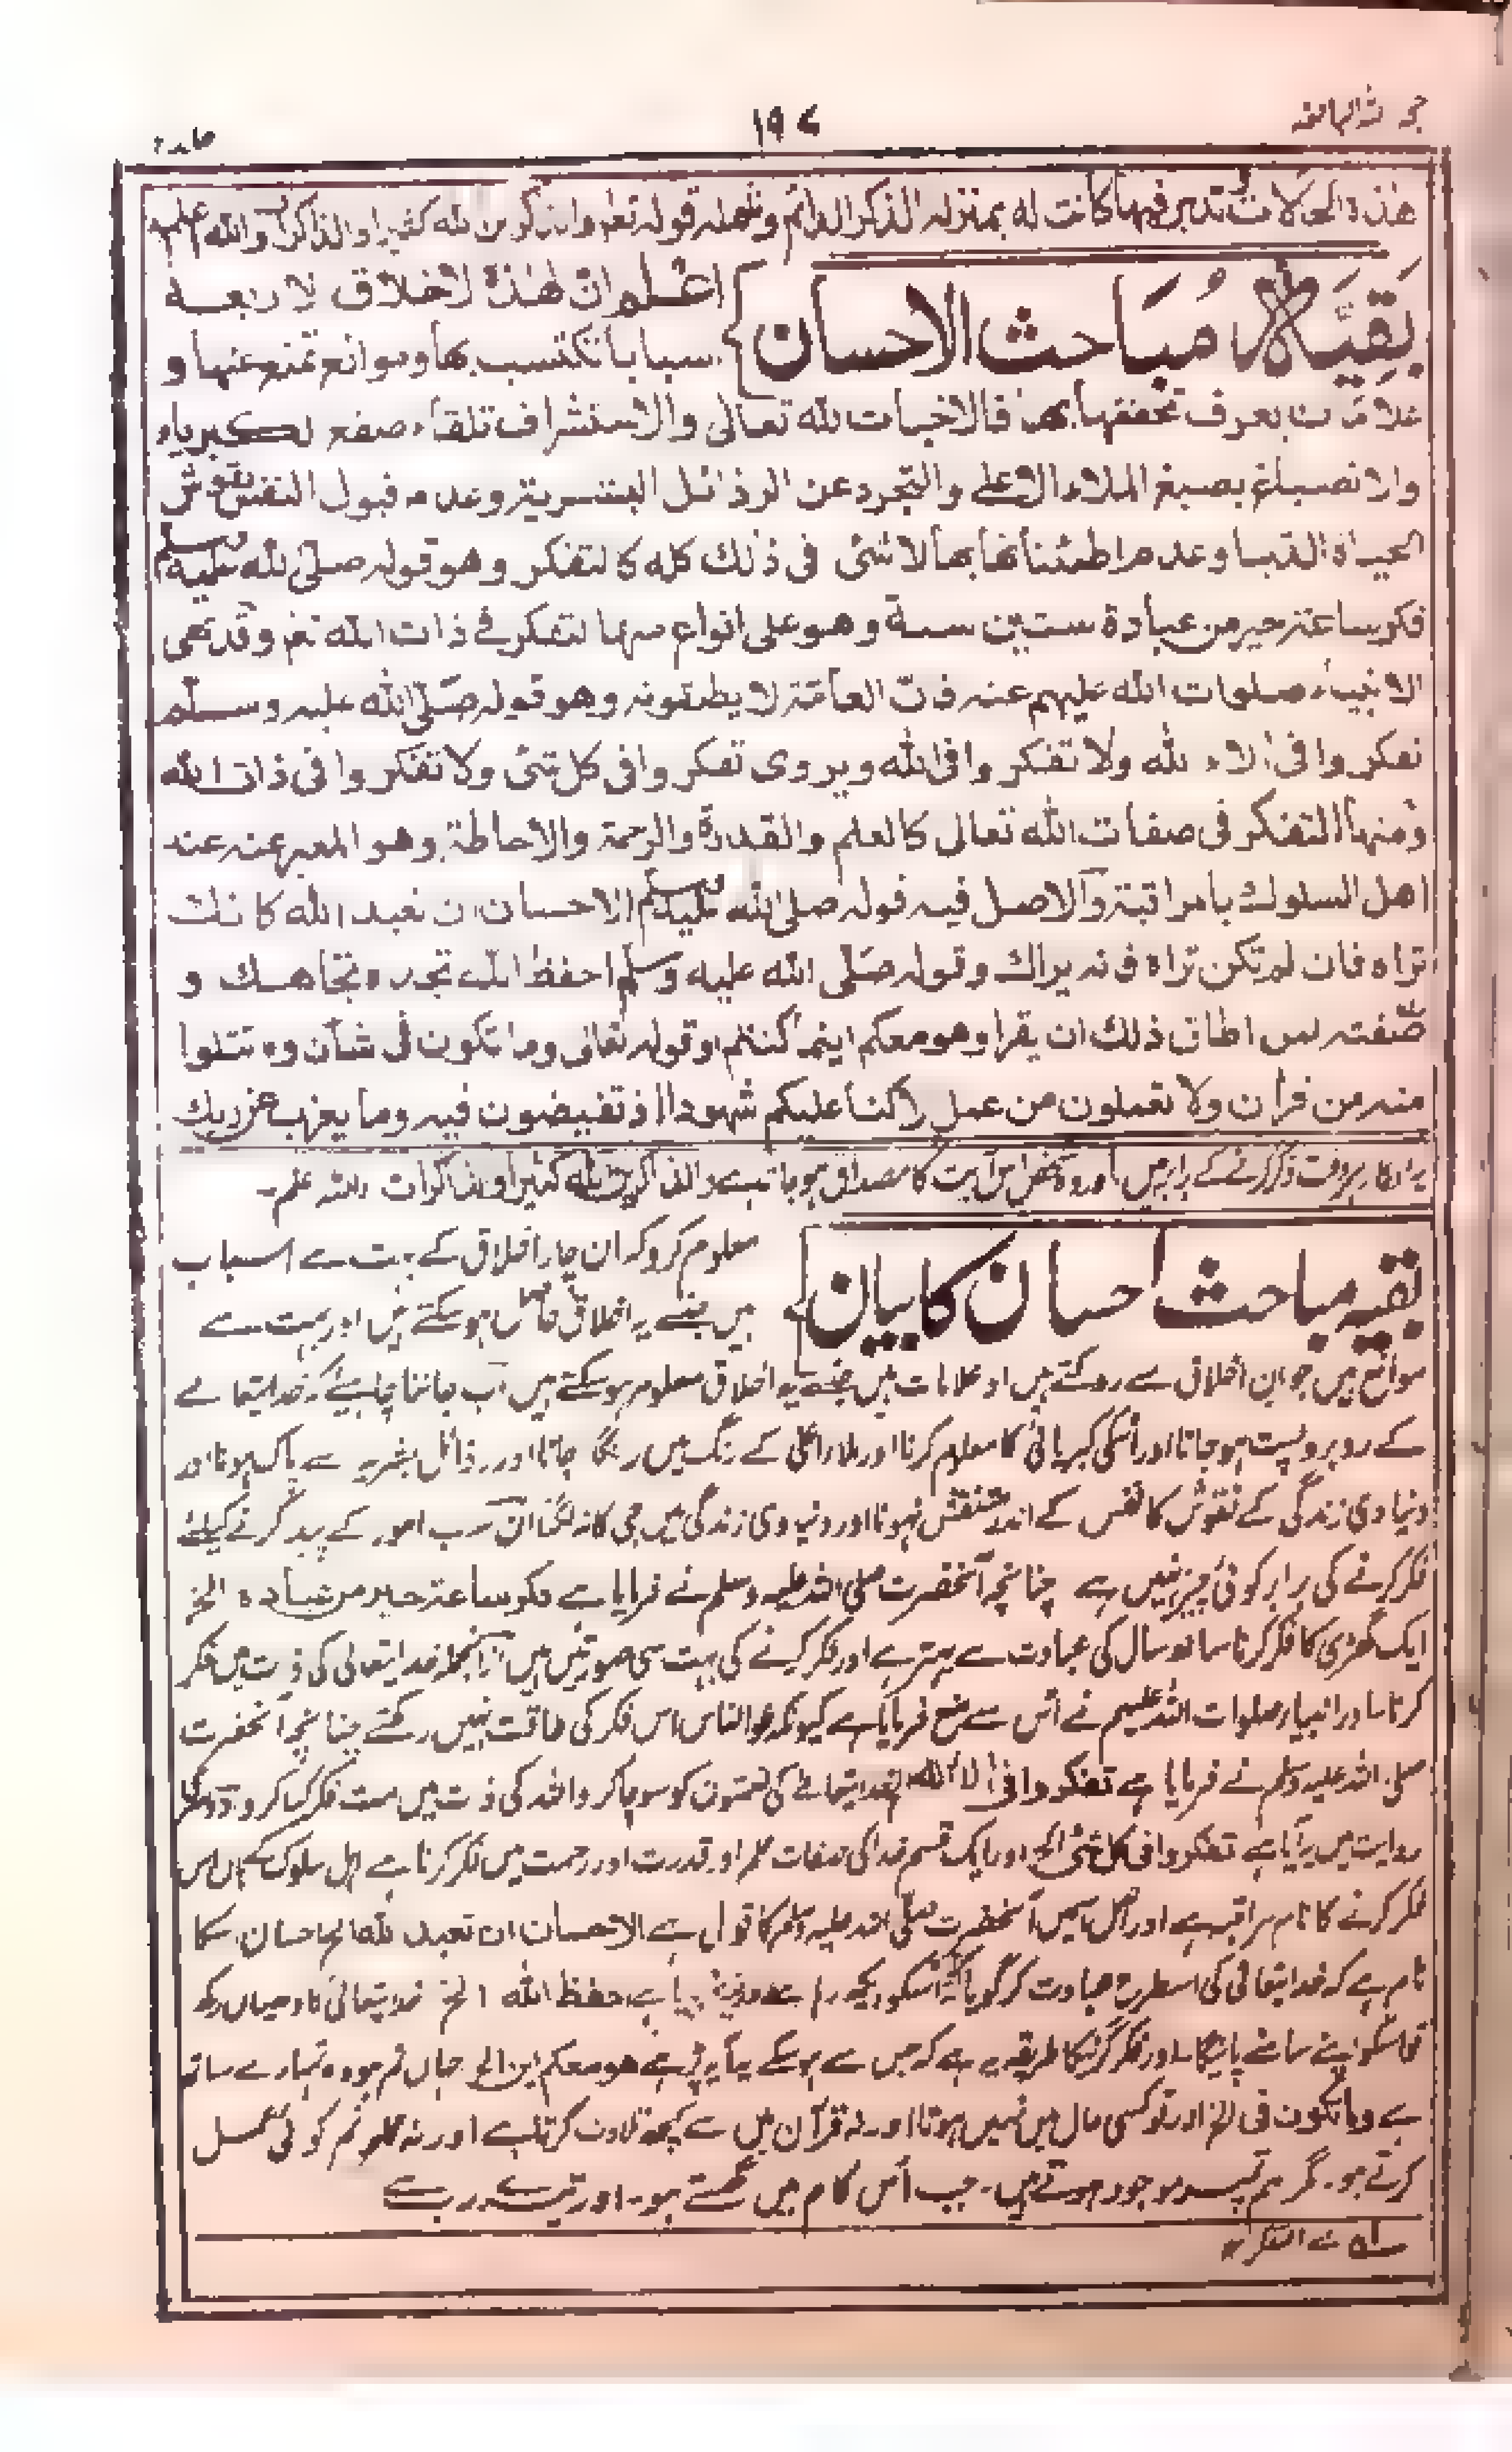 ۱۹۷
هذه الحالات تدبر فيها كانت له بمنزلة الذكر الدائم وشمله قوله تعا والذاكرين الله كثيرا والذاكرات والله اعلم
بَقِيَّة مُبَاحث الاحسان
اعلم ان لهذه الاخلاق الاربعة
اسبابا تكتسب بها وموانع تمنع عنها و
علامات يعرف تحققها بها فالاخبات لله تعالى والاستشراف تلقاء صقع الكبرياء
والانصباغ بصبغ الملاء الاعلى والتجرد عن الرذائل البشرية وعدم قبول النفس نقوش
الحياة الدنيا وعدم اطمئنانها بها لا شئ فى ذلك كله كالتفكر وهو قوله صلى الله عليه وسلم
فكر ساعة خير من عبادة ستين سنة وهو على انواع منها التفكر في ذات الله تعا وقد نهى
الانبياء صلوات الله عليهم عنه فان العامة لا يطيقونه وهو قوله صلى الله عليه وسلم
تفكروا فى آلاء الله ولا تفكروا فى الله ويروى تفكروا فى كل شئ ولا تفكروا فى ذات الله
ومنها التفكر فى صفات الله تعالى كالعلم والقدرة والرحمة والاحاطة وهو المعبر عنه عند
اهل السلوك بالمراقبة والاصل فيه قوله صلى الله عليه وسلم الاحسان ان تعبد الله كانك
تراه فان لم تكن تراه فانه يراك وقوله صلى الله عليه وسلم احفظ الله تجده تجاهك و
صفته لمن اطاق ذلك ان يقرا وهو معكم اينما كنتم او قوله تعالى وما تكون فى شأن وما تتلوا
منه من قرأن ولا تعملون من عمل الا كنا عليكم شهودا اذ تفيضون فيه وما يعزب عن ربك
ہروقت ذکر کرنے کے برابر ہیں اور وہ شخص اس آیت کا مصداق ہو جاتا ہے والذاکرین الله کثیرا والذاکرات والله اعلم۔
بقیہ مباحث احسان کا بیان
معلوم کرو کہ ان چار اخلاق کے بہت سے اسباب
ہیں جنسے یہ اخلاق حاصل ہو سکتے ہیں اور بہت سے
موانع ہیں جو ان اخلاق سے روکتے ہیں اور علامات ہیں جنسے یہ اخلاق معلوم ہو سکتے ہیں اب جاننا چاہیئے کہ خدا یتعالے
کے روبرو پست ہو جانا اور اُسکی کبریائی کا معلوم کرنا اور ملاء اعلی کے رنگ میں رنگا جانا اور رذائل بشریہ سے پاک ہونا اور
دنیاوی زندگی کے نقوش کا نفس کے اندر منقش نہونا اور دنیاوی زندگی میں جی کا نہ لگنا ان سب امور کے پیدا کرنے کیلئے
فکر کرنے کی برابر کوئی چیز نہیں ہے چنانچہ آنحضرت صلی اللہ علیہ وسلم نے فرمایا ہے فکر ساعة خیر من عبادة الخ
ایک گھڑی کا فکر کرنا ساٹھ سال کی عبادت سے بہتر ہے اور فکر کرنے کی بہت سی صورتیں ہیں ازانجملہ خدا یتعالی کی ذات میں فکر
کرنا اور انبیاء صلوات اللہ علیہم نے اُس سے منع فرمایا ہے کیونکہ عوام الناس اس فکر کی طاقت نہیں رکھتے چنانچہ آنحضرت
صلی اللہ علیہ وسلم نے فرمایا ہے تفکروا فی آلاء الله خدا یتعالے کی نعمتوں کو سوچا کرو اللہ کی ذات میں مت فکر کیا کرو
روایت میں یہ آیا ہے تفکروا فی کل شئی الخ اور ایک قسم خدا کی صفات علم اور قدرت اور رحمت میں فکر کرنا ہے اہل سلوک کے ہاں اس
فکر کرنے کا نام مراقبہ ہے اور اصل اسمیں آنحضرت صلی اللہ علیہ وسلم کا قول ہے الاحسان ان تعبد الله الخ احسان اسکا
نام ہے کہ خدا یتعالی کی اسطرح عبادت کر گویا کہ تو اُسکو دیکھ رہا ہے احفظ الله الخ خدا یتعالی کا دھیان رکھ
تو اسکو اپنے سامنے پائیگا۔ اور فکر کرنیکا طریقہ یہ ہے کہ جس سے ہو سکے یہ آیہ پڑہے هو معکم این الخ جہاں تم ہو وہ تمہارے ساتھ
ہے وما تکون فی الخ اور تو کسی حال میں نہیں ہوتا اور نہ قرآن میں سے کچھ تلاوت کرتا ہے اور نہ تم کوئی عمل
کرتے ہو۔ مگر ہم تمپر موجود ہوتے ہیں۔ جب اُس کام میں گھستے ہو۔ اور تیرے رب سے